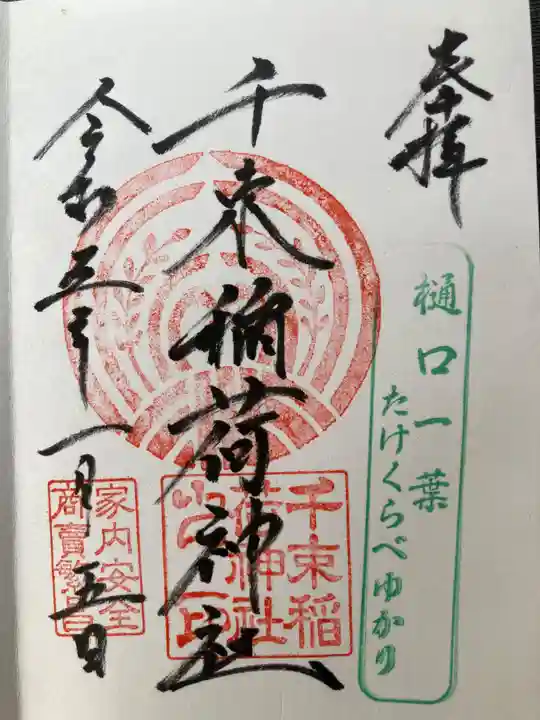 奉拝
樋口一葉
たけくらべゆかり
千束稲荷神社
千束稲
荷神社
之印
令和五年一月五日
家内安全
商賣繁昌